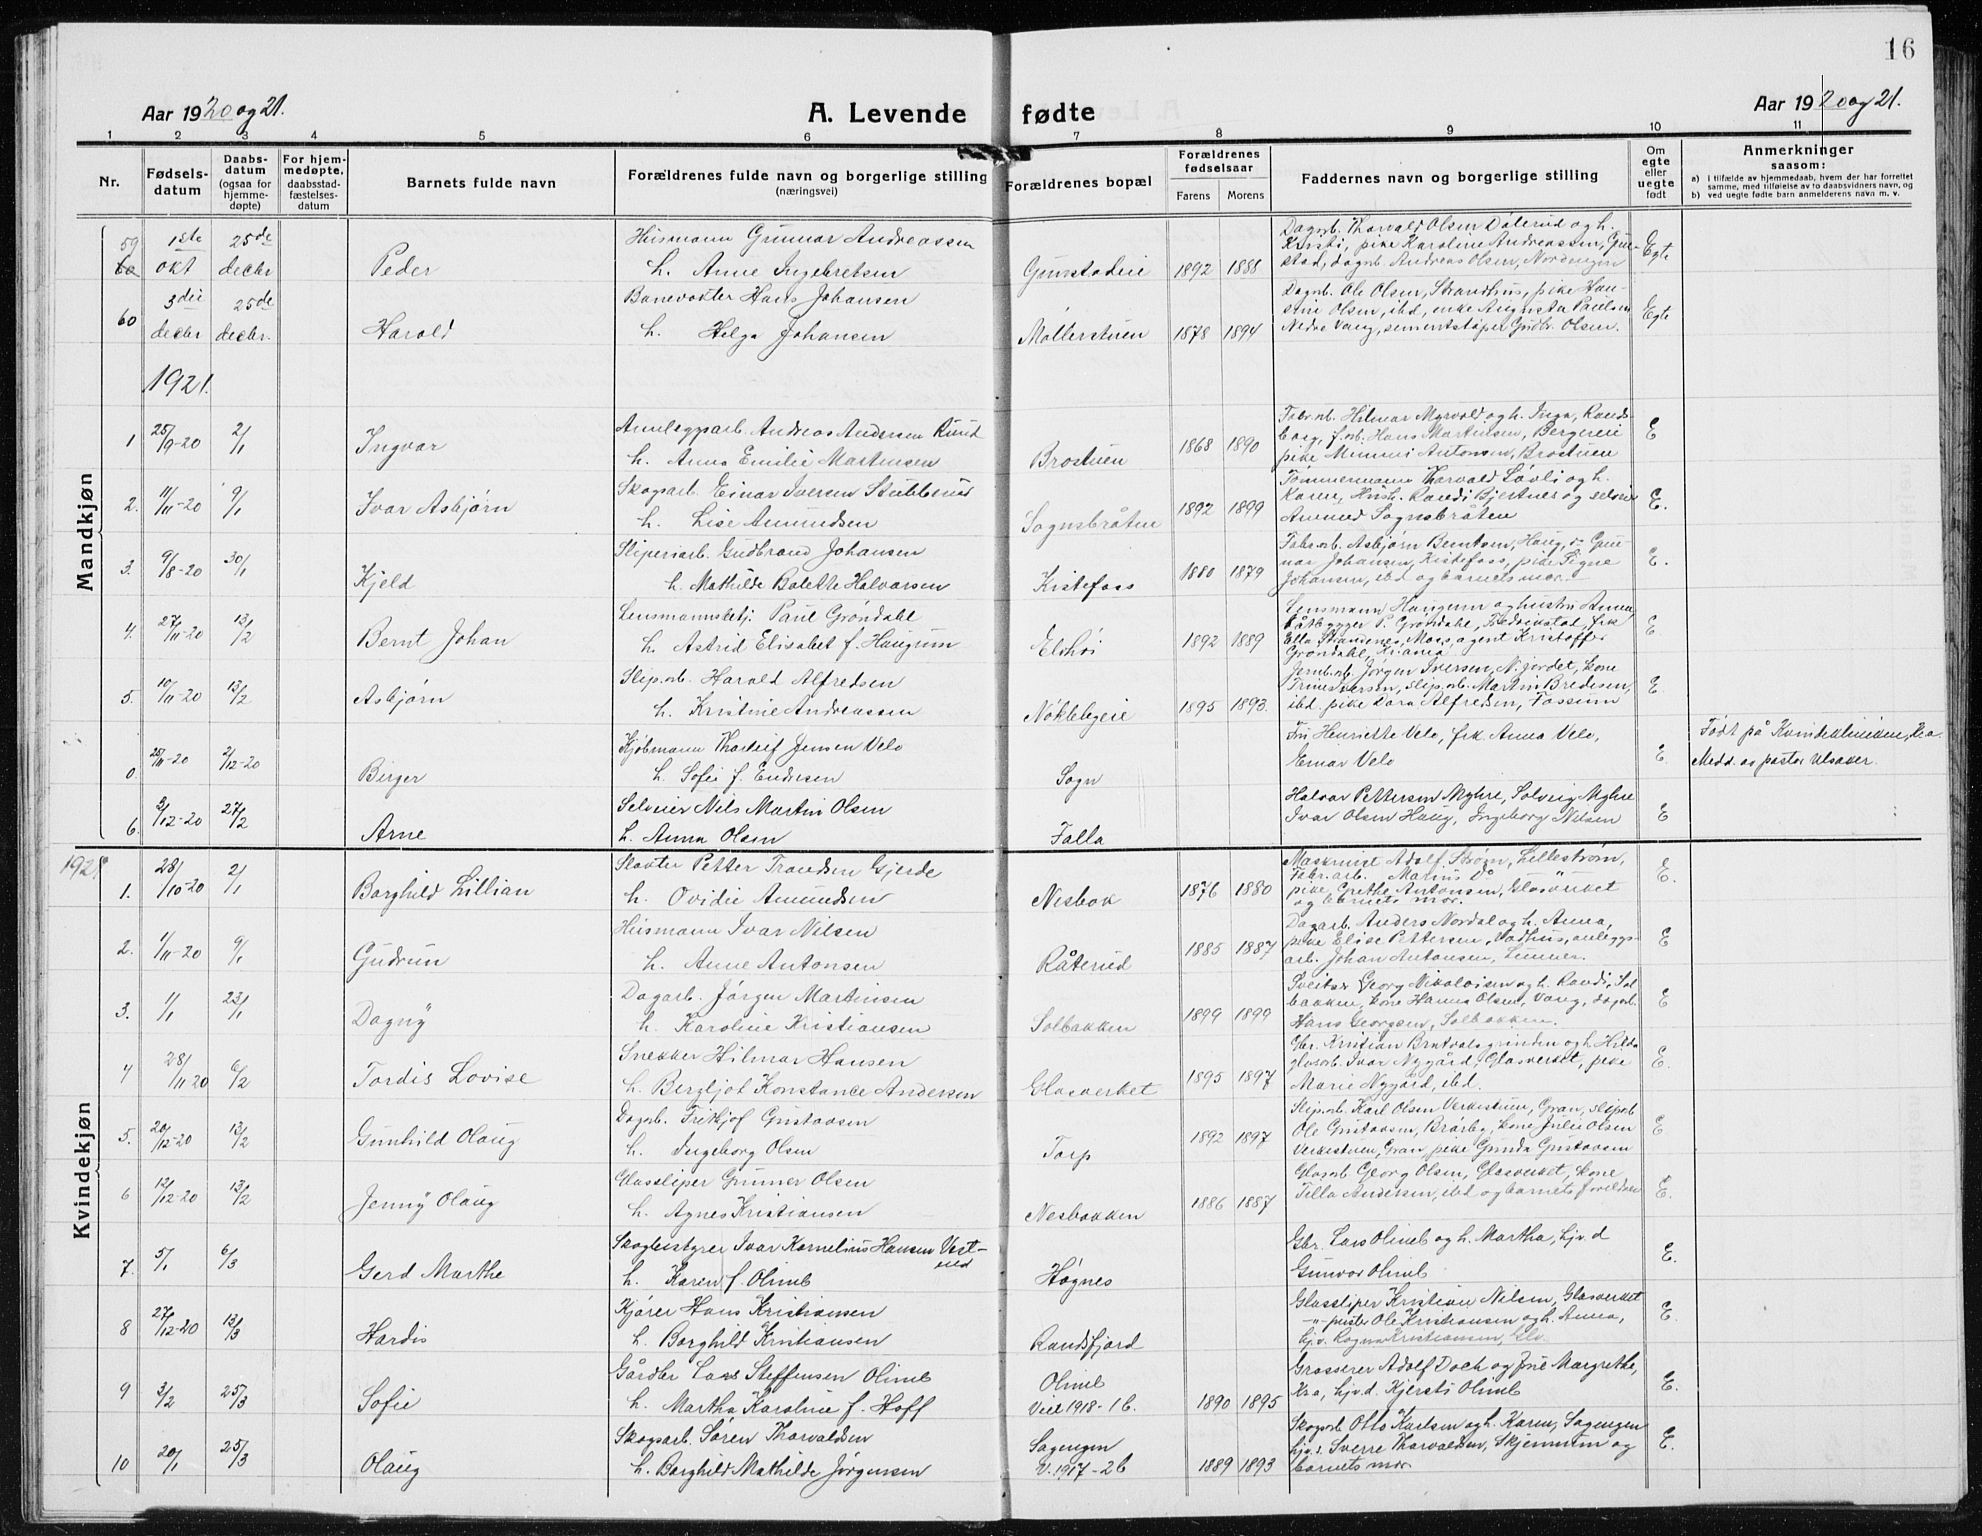 16
Aar 1920 og 21.
A. Levende fødte
Aar 1920 og 21.
1 2 3 4 5 6 7 8 9 10 11
Nr.
Fødsels-
datum
Daabs-
datum
(ogsaa for
hjemme-
døpte)
For hjem-
medøpte,
daabsstad-
fæstelses-
datum
Barnets fulde navn
Forældrenes fulde navn og borgerlige stilling
(næringsvei)
Forældrenes bopæl
Forældrenes
fødselsaar
Farens Morens
Faddernes navn og borgerlige stilling
Om
egte
eller
uegte
født
Anmerkninger
saasom:
a) i tilfælde av hjemmedaab, hvem der har forrettet
samme, med tilføielse av to daabsvidners navn, og
b) ved uegte fødte barn anmelderens navn m. v.
Mandkjøn
59 1ste okt 25de decbr Peder
Husmann Gunnar Andreassen
h. Anne Ingebretsen
1892 1888
Dagarb. Thorvald Olsen Dæterud og h.
Kristi, pike Karoline Andreassen,
dagarb. Andreas Olsen, Nordengen
Egte
60 3die decbr 25de decbr. Harald
Banevokter Hans Johansen
h. Helga Johansen
Møllerstuen 1878 1894
Dagarb. Ole Olsen, Strandhus, pike Han-
sine Olsen, ibd, enke Augusta Paulsen
Nedre Vang, sementstøper Gudbr. Olsen.
Egte
1921.
1 25/9-20 2/1 Ingvar
Anleggsarb. Andreas Andersen Rund
h. Anna Emilie Martinsen
Brostuen 1868 1890
Fabr.arb. Hilmar Myrvold og h. Inga, Rands-
borg, f.arb. Hans Martinsen, Bergereie
pike Mimmi Antonsen, Brostuen
E
2. 11/11-20 9/1 Ivar Asbjørn
Skogsarb. Einar Iversen Stubberud
h. Lise Amundsen
Sognsbråten 1892 1899
Tømmermann Thorvald Løvli og h.
Karen, Hush. Randi Bjertnes og selveier
Amund Sognsbråten
E.
3. 9/8-20 30/1 Kjeld
Sliperiarb. Gudbrand Johansen
h. Mathilde Bolette Halvorsen
Kistefoss 1880 1879
Fabr.arb. Asbjørn Berntsen, Haug, Gun-
nar Johansen, Kistefoss, pike Signe
Johansen, ibd og barnets mor.
E.
4. 27/11-20 13/2 Bernt Johan
Lensmannsbetj. Paul Grøndahl
h. Astrid Elisabet f. Haugerun
Elshøi 1892 1889
Lensmann Haugerun og hustru Anna,
Båtbygger P. Grøndahl, Fredrikstad, frk
Ella Strandenes, Moss, agent Kristoffer
Grøndahl, Kr.ania
E
5. 10/11-20 13/2 Asbjørn
Slip.arb. Harald Alfredsen
h. Kristine Andreassen
Nøklebyeie 1895 1893.
Jernb.arb. Jørgen Iversen, N. jordet, kone
Trine Iversen, slip.arb. Martin Bredesen,
ibd. pike Dora Alfredsen, Fossum
E
0. 25/11-20 2/12-20 Birger
Kjøbmann Thorleif Jensen Velo
h. Sofie f. Endresen
Sogn
Fru Henriette Velo, frk. Anna Velo,
Einar Velo
E.
Født på Kvindeklinikken, Kra.
Medd. av pastor Ulsaker.
6. 3/12-20 27/2 Arne
Selveier Nils Martin Olsen
h. Anna Olsen
Falla
Halvor Pettersen Myhre, Solveig Myhre
Ivar Olsen Haug, Ingeborg Nilsen
E
Kvindekjøn
1921.
1. 28/10-20 2/1 Borghild Lillian
Slakter Petter Trondsen Gjerde
h. Ovidie Amundsen
Nesbak 1876 1880
Maskinist Adolf Strøm, Lillestrøm,
Fabr.arb. Marius Do
pike Grethe Antonsen, Glasverket
og barnets mor.
E.
2. 1/11-20 9/1 Gudrun
Husmann Ivar Nilsen
h. Anne Antonsen
Råterud 1885 1887
Dagarb. Anders Nordal og h. Anna,
pike Elise Pettersen, anleggs-
arb. Johan Antonsen, Lunner.
E
3. 1/1 23/1 Dagny
Dagarb. Jørgen Martinsen
h. Karoline Kristiansen
Solbakken 1899 1899
Georg Nikolaisen og h. Randi, Sol
bakken, kone Hanna Olsen, Vang, dagarb.
Hans Georgsen, Solbakken.
E
4 28/11 20 6/2 Tordis Lovise
Snekker Hilmar Hansen
h. Bergljot Konstance Andersen
Glasverket 1895 1897
Gbr. Kristian Bratvalsgrinden og h. Hilda
glasarb. Ivar Nygård, Glasverket, pike
Marie Nygård, ibd.
E.
5. 20/12-20 13/2 Gunhild Olaug
Dagarb. Fritjof Gustavsen
h. Ingeborg Olsen
Torp 1892 1897
Slip.arb. Karl Olsen Verkestuen, Gran, slip.arb
Ole Gustavsen, Brårby, kone Julie Olsen
Verkestuen, Gran, pike Gunda Gustavsen
E
6 12/12-20 13/2 Jenny Olaug
Glassliper Gunner Olsen
h. Agnes Kristiansen
Nesbakken 1886 1887
Glasarb Georg Olsen, Glasverket, kone
Tilla Andersen, ibd og barnets foreldre
E.
7. 5/1 6/3 Gerd Marthe
Skogbestyrer Ivar Kornelius Hansen Vest-
ern
h. Karen f. Olimb
Høgnes
Gbr. Lars Olimb og h. Martha, hjv.d
Gunvor Olimb
E.
8 27/12-20 13/3 Hardis
Kjører Hans Kristiansen
h. Borghild Kristiansen
Randsfjord
Glassliper Kristian Nilsen, Glasverket
-"- puster Ole Kristiansen og h. Anna,
hjv. Ragna Kristiansen, Glv.
E.
9 3/2 25/3 Sofie
Gårdbr Lars Steffensen Olimb
h. Martha Karoline f. Hoff
Olimb
Viet 1918 - 16.
1890 1895
Grosserer Adolf Doch og frue Margrethe,
Kra, hjv.d. Kjersti Olimb
E.
10 20/1 25/3 Olaug
Skogsarb. Søren Thorvaldsen
h. Borghild Mathilde Jørgensen
Sagengen
V. 1917 - 26
1889 1893
Skogarb Otto Karlsen og h. Karen, Sagengen
hjv.s. Sverre Thorvaldsen, Skjennum og
barnets mor
E.